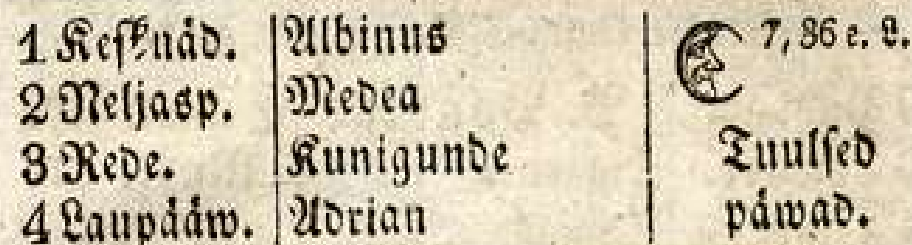 1 Kesknäd. Albinus 7,36 e. L.
2 Neljasp. Medea
3 Rede. Kunigunde Tuulsed
4 Laupääw. Adrian päwad.